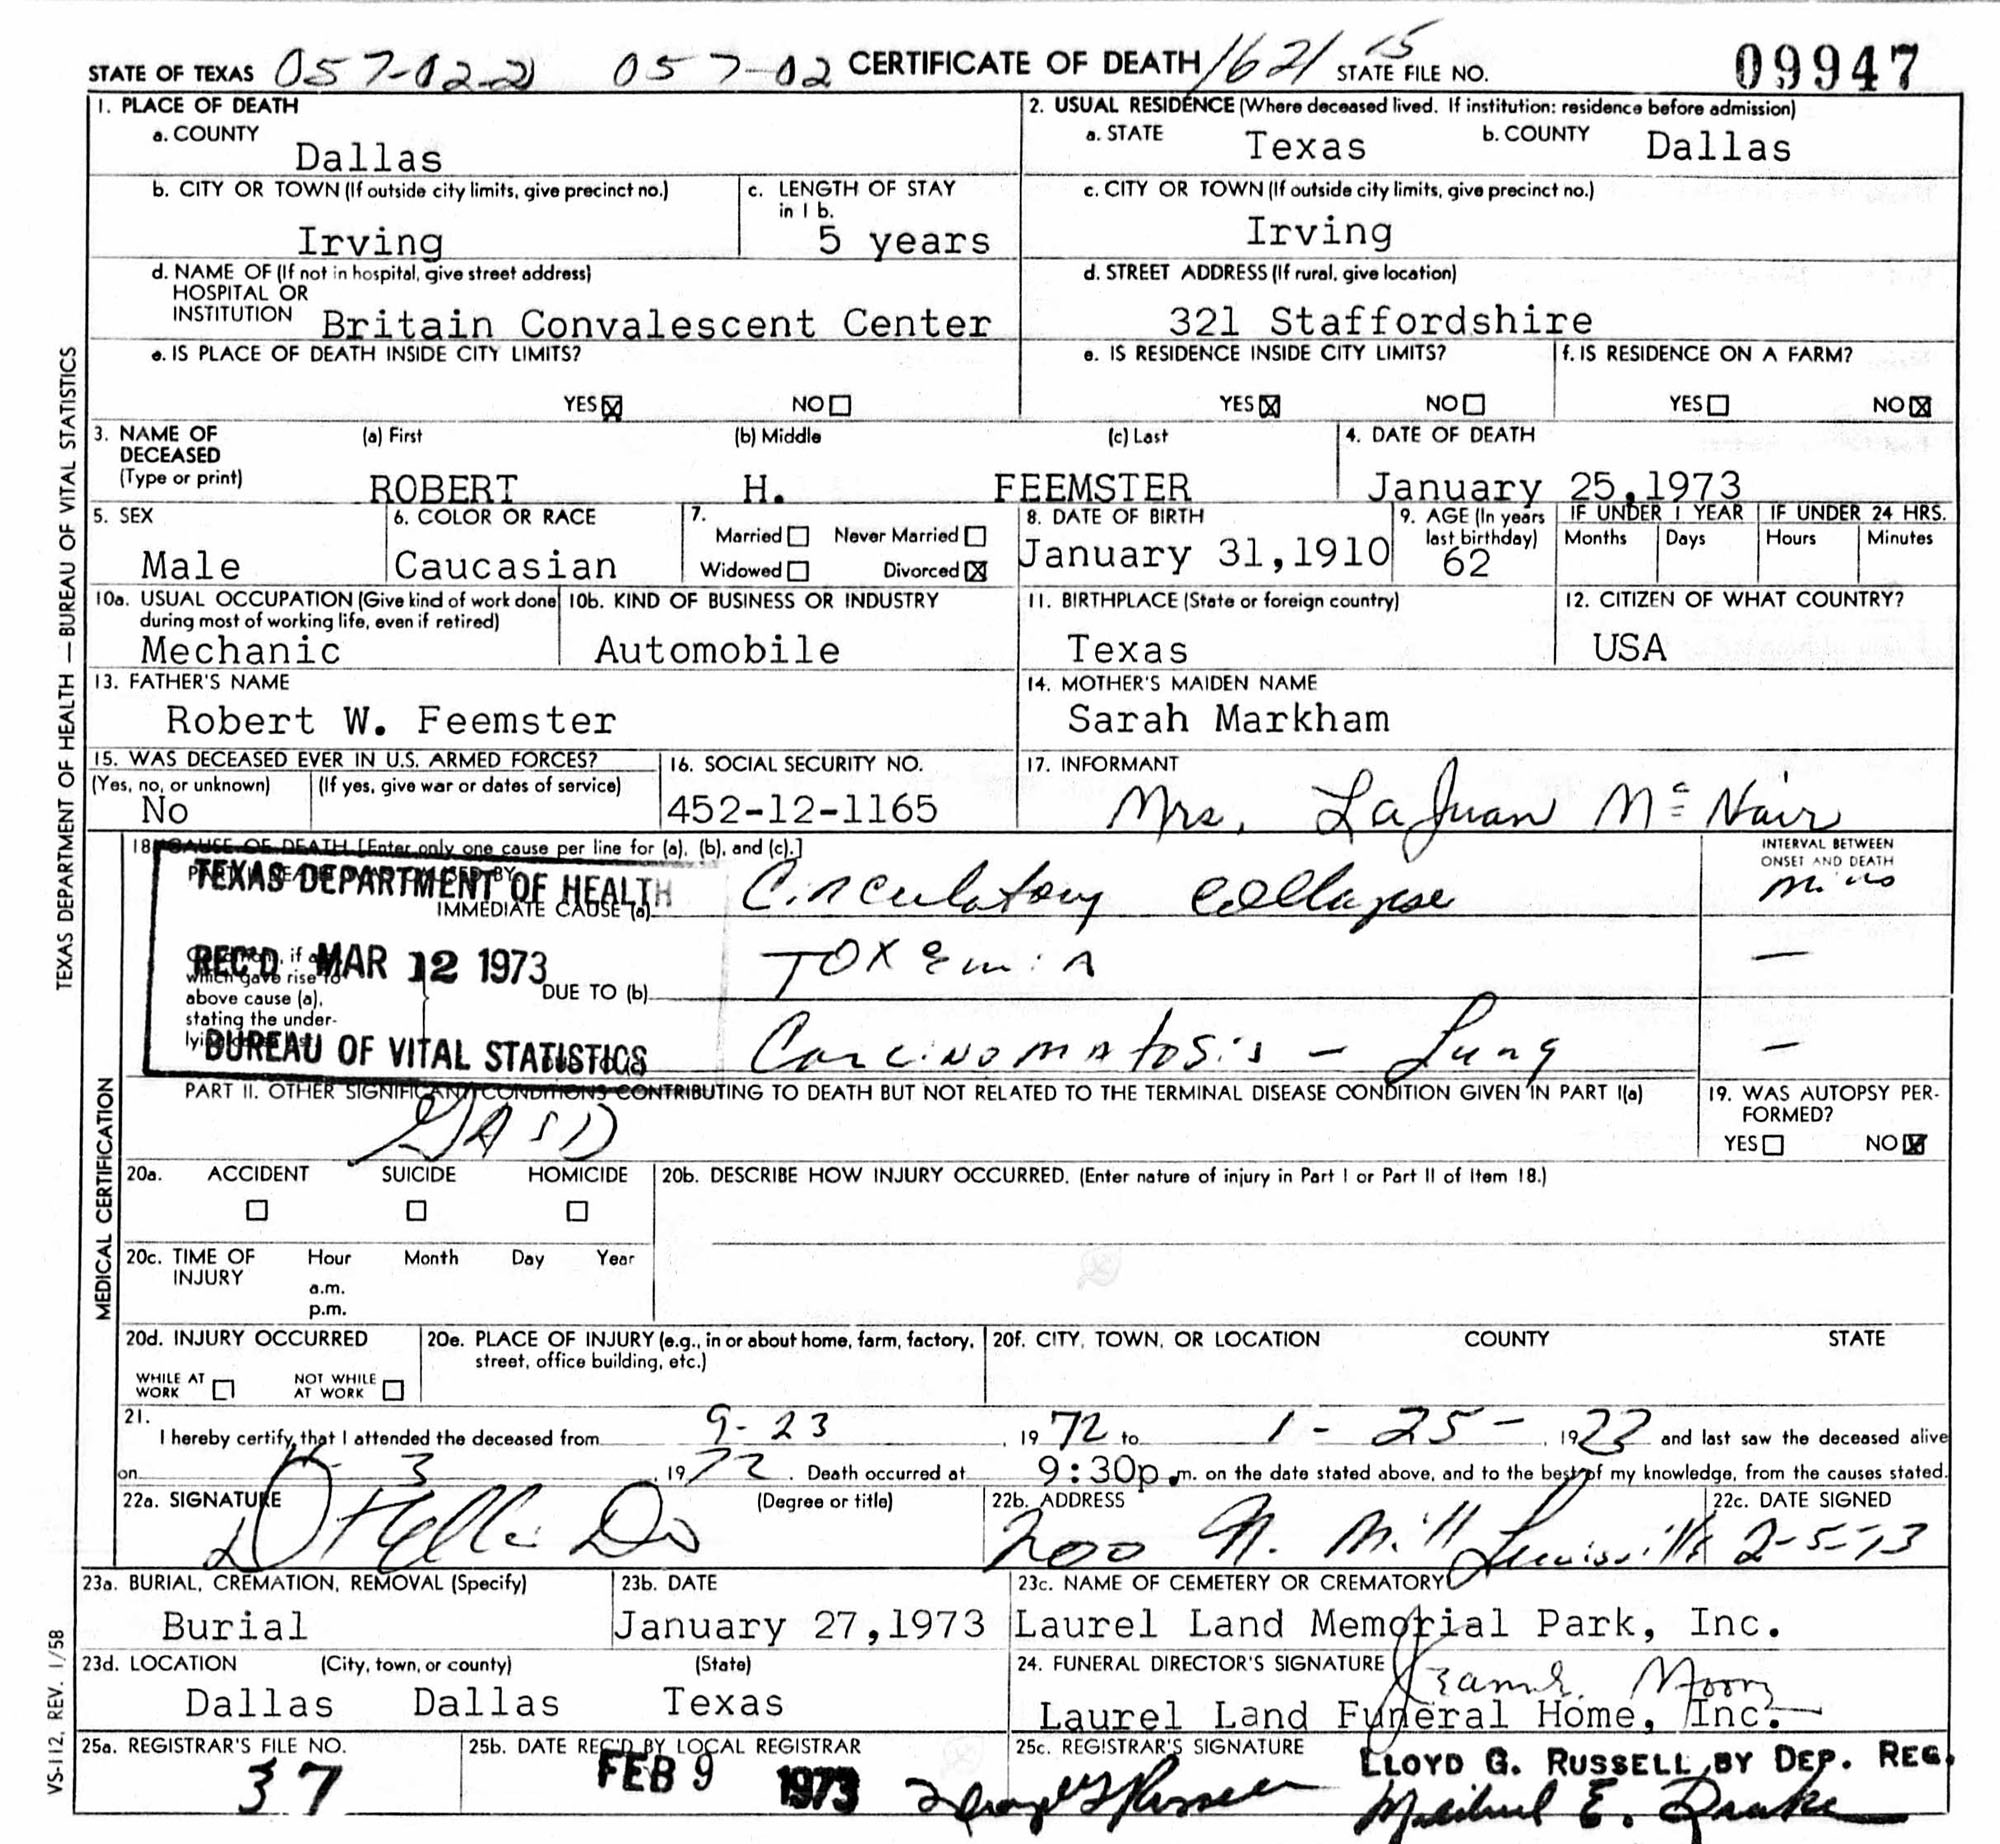 STATE OF TEXAS 057-02-2 057-02 CERTIFICATE OF DEATH 1621 15 STATE FILE NO. 09947
TEXAS DEPARTMENT OF HEALTH — BUREAU OF VITAL STATISTICS
1. PLACE OF DEATH
a. COUNTY
Dallas
2. USUAL RESIDENCE (Where deceased lived. If institution: residence before admission)
a. STATE Texas b. COUNTY Dallas
b. CITY OR TOWN (If outside city limits, give precinct no.)
Irving
c. LENGTH OF STAY
in 1 b.
5 years
c. CITY OR TOWN (If outside city limits, give precinct no.)
Irving
d. NAME OF (If not in hospital, give street address)
HOSPITAL OR
INSTITUTION Britain Convalescent Center
d. STREET ADDRESS (If rural, give location)
321 Staffordshire
e. IS PLACE OF DEATH INSIDE CITY LIMITS?
YES☒ NO☐
e. IS RESIDENCE INSIDE CITY LIMITS?
YES☒ NO☐
f. IS RESIDENCE ON A FARM?
YES☐ NO☒
3. NAME OF
DECEASED
(Type or print)
(a) First (b) Middle (c) Last
ROBERT H. FEEMSTER
4. DATE OF DEATH
January 25,1973
5. SEX
Male
6. COLOR OR RACE
Caucasian
7.
Married☐ Never Married☐
Widowed☐ Divorced☒
8. DATE OF BIRTH
January 31,1910
9. AGE (In years
last birthday)
62
IF UNDER 1 YEAR
Months Days
IF UNDER 24 HRS.
Hours Minutes
10a. USUAL OCCUPATION (Give kind of work done
during most of working life, even if retired)
Mechanic
10b. KIND OF BUSINESS OR INDUSTRY
Automobile
11. BIRTHPLACE (State or foreign country)
Texas
12. CITIZEN OF WHAT COUNTRY?
USA
13. FATHER'S NAME
Robert W. Feemster
14. MOTHER'S MAIDEN NAME
Sarah Markham
15. WAS DECEASED EVER IN U.S. ARMED FORCES?
(Yes, no, or unknown) (If yes, give war or dates of service)
No
16. SOCIAL SECURITY NO.
452-12-1165
17. INFORMANT
Mrs. LaJuan McNair
MEDICAL CERTIFICATION
18. CAUSE OF DEATH [Enter only one cause per line for (a), (b), and (c).]
INTERVAL BETWEEN
ONSET AND DEATH
TEXAS DEPARTMENT OF HEALTH
IMMEDIATE CAUSE (a) Circulatory collapse
REC'D MAR 12 1973
which gave rise to
above cause (a),
stating the under-
DUE TO (b) Toxemia —
BUREAU OF VITAL STATISTICS
Carcinomatosis — Lung —
PART II. OTHER SIGNIFICANT CONDITIONS CONTRIBUTING TO DEATH BUT NOT RELATED TO THE TERMINAL DISEASE CONDITION GIVEN IN PART I(a)
19. WAS AUTOPSY PER-
FORMED?
YES☐ NO☒
20a. ACCIDENT SUICIDE HOMICIDE
☐ ☐ ☐
20b. DESCRIBE HOW INJURY OCCURRED. (Enter nature of injury in Part I or Part II of Item 18.)
20c. TIME OF
INJURY
Hour Month Day Year
a.m.
p.m.
20d. INJURY OCCURRED
WHILE AT
WORK ☐
NOT WHILE
AT WORK ☐
20e. PLACE OF INJURY (e.g., in or about home, farm, factory,
street, office building, etc.)
20f. CITY, TOWN, OR LOCATION COUNTY STATE
21.
I hereby certify that I attended the deceased from 9-23, 1972 to 1-25-, 1973 and last saw the deceased alive
on 3, 1972. Death occurred at 9:30p.m. on the date stated above, and to the best of my knowledge, from the causes stated.
22a. SIGNATURE (Degree or title)
DO
22b. ADDRESS
200 N. Mill Lewisville
22c. DATE SIGNED
2-5-73
23a. BURIAL, CREMATION, REMOVAL (Specify)
Burial
23b. DATE
January 27,1973
23c. NAME OF CEMETERY OR CREMATORY
Laurel Land Memorial Park, Inc.
23d. LOCATION (City, town, or county) (State)
Dallas Dallas Texas
24. FUNERAL DIRECTOR'S SIGNATURE
Laurel Land Funeral Home, Inc.
25a. REGISTRAR'S FILE NO.
37
25b. DATE REC'D BY LOCAL REGISTRAR
FEB 9 1973
25c. REGISTRAR'S SIGNATURE
LLOYD G. RUSSELL, BY DEP. REG.
Lloyd G Russell Mildred E. Drake
VS-112, REV. 1/58